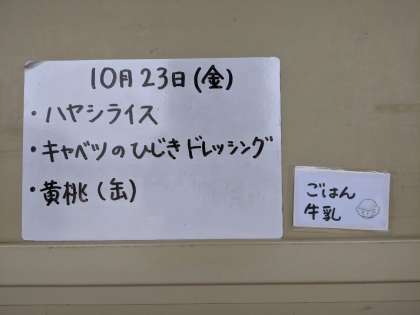 10月23日(金)
・ハヤシライス
・キャベツのひじきドレッシング
・黄桃(缶)
ごはん
牛乳